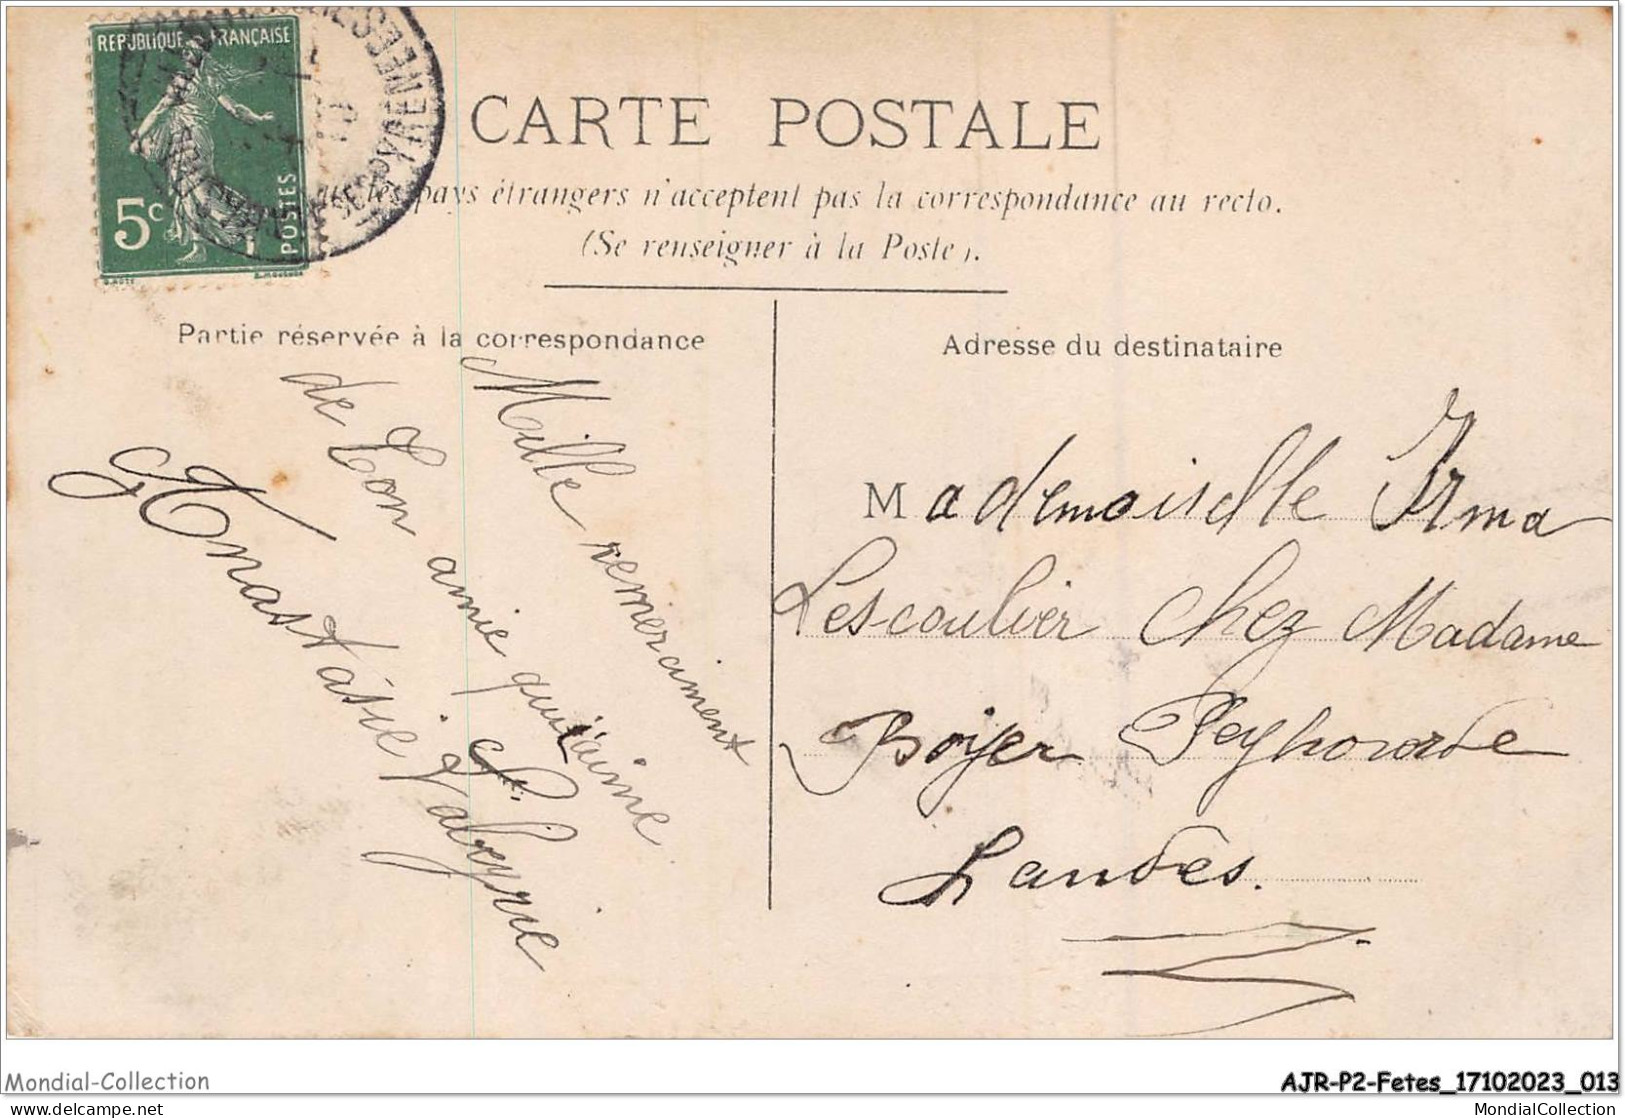 REPUBLIQUE FRANÇAISE
5c
POSTES
CARTE POSTALE
les pays étrangers n'acceptent pas la correspondance au recto.
(Se renseigner à la Poste).
Partie réservée à la correspondance
Adresse du destinataire
Mille remerciment
de Ton amie qui t'aime
Anastasie Valeyrie
Mademoiselle Irma
Lescoulier chez Madame
Boyer Peyhorade
Landes.
Mondial-Collection
AJR-P2-Fetes_17102023_013
www.delcampe.net
MondialCollection